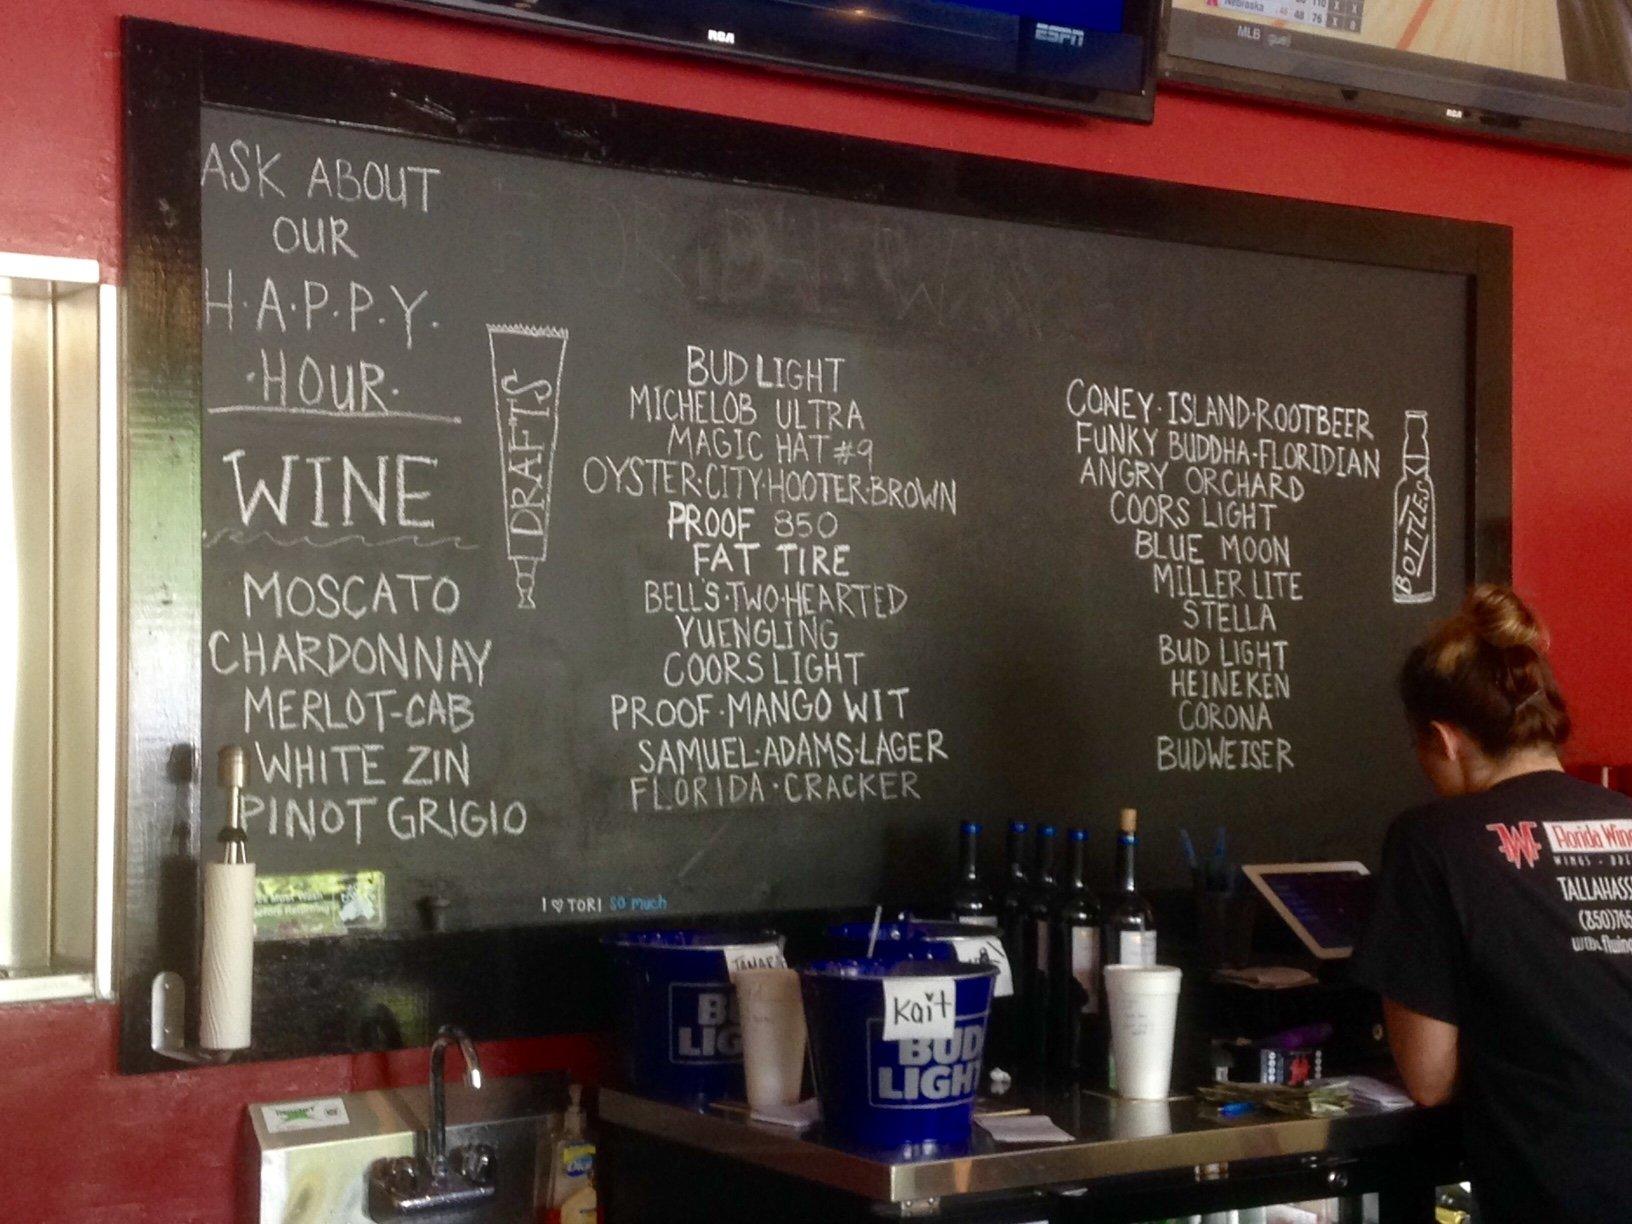 RCA
ESPN
Nebraska 48 76
MLB
RCA
ASK ABOUT
OUR
H·A·P·P·Y·
·HOUR·
WINE
MOSCATO
CHARDONNAY
MERLOT-CAB
WHITE ZIN
PINOT GRIGIO
DRAFTS
BUD LIGHT
MICHELOB ULTRA
MAGIC HAT #9
OYSTER·CITY·HOOTER·BROWN
PROOF 850
FAT TIRE
BELL'S·TWO·HEARTED
YUENGLING
COORS LIGHT
PROOF·MANGO WIT
SAMUEL·ADAMS·LAGER
FLORIDA·CRACKER
CONEY·ISLAND·ROOTBEER
FUNKY BUDDHA·FLORIDIAN
ANGRY ORCHARD
COORS LIGHT
BLUE MOON
MILLER LITE
STELLA
BUD LIGHT
HEINEKEN
CORONA
BUDWEISER
BOTTLES
I ♡ TORI SO much
TAMARA
Kait
BUD
LIGHT
BU
LIG
Florida Wing
WINGS - BRE
TALLAHASS
(850)765